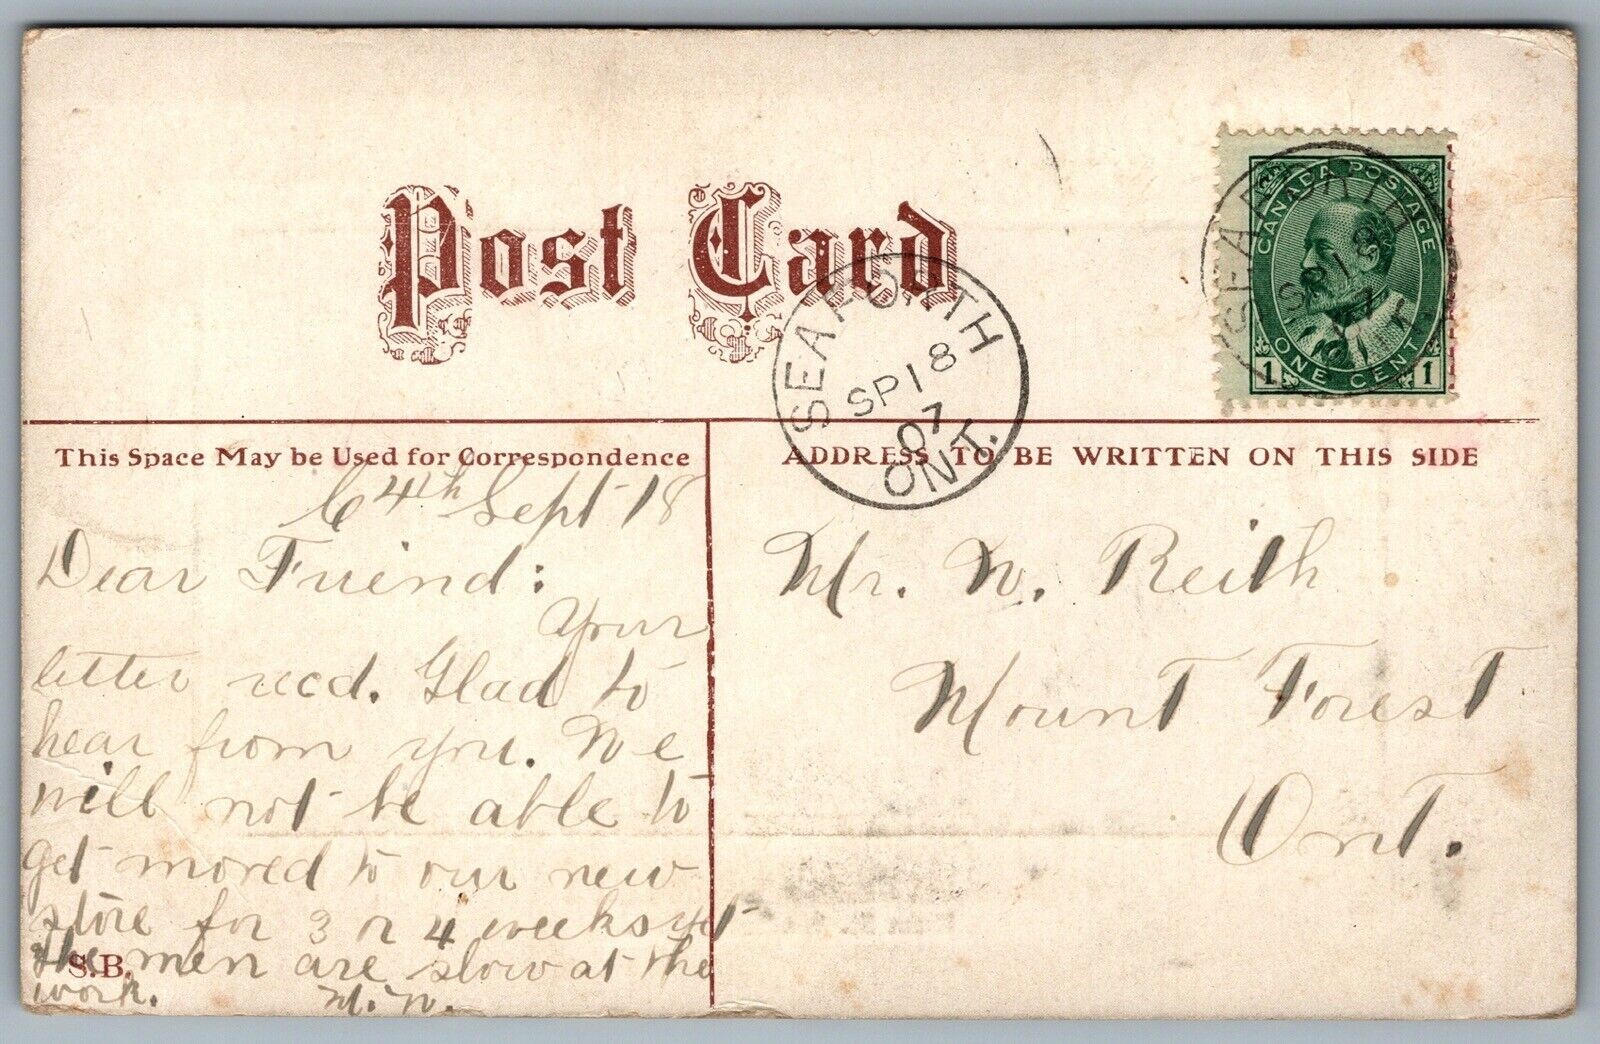 Post Card
CANADA POSTAGE
1 ONE CENT 1
SEAFORTH
SP 18
ONT.
SEAFORTH
SP 18
07
ONT.
This Space May be Used for Correspondence
ADDRESS TO BE WRITTEN ON THIS SIDE
Sept 18
Dear Friend:
Your
letter recd. Glad to
hear from you. We
will not be able to
get moved to our new
store for 3 or 4 weeks yet
the men are slow at the
work. M. W.
S.B.
Mr. W. Reith
Mount Forest
Ont.